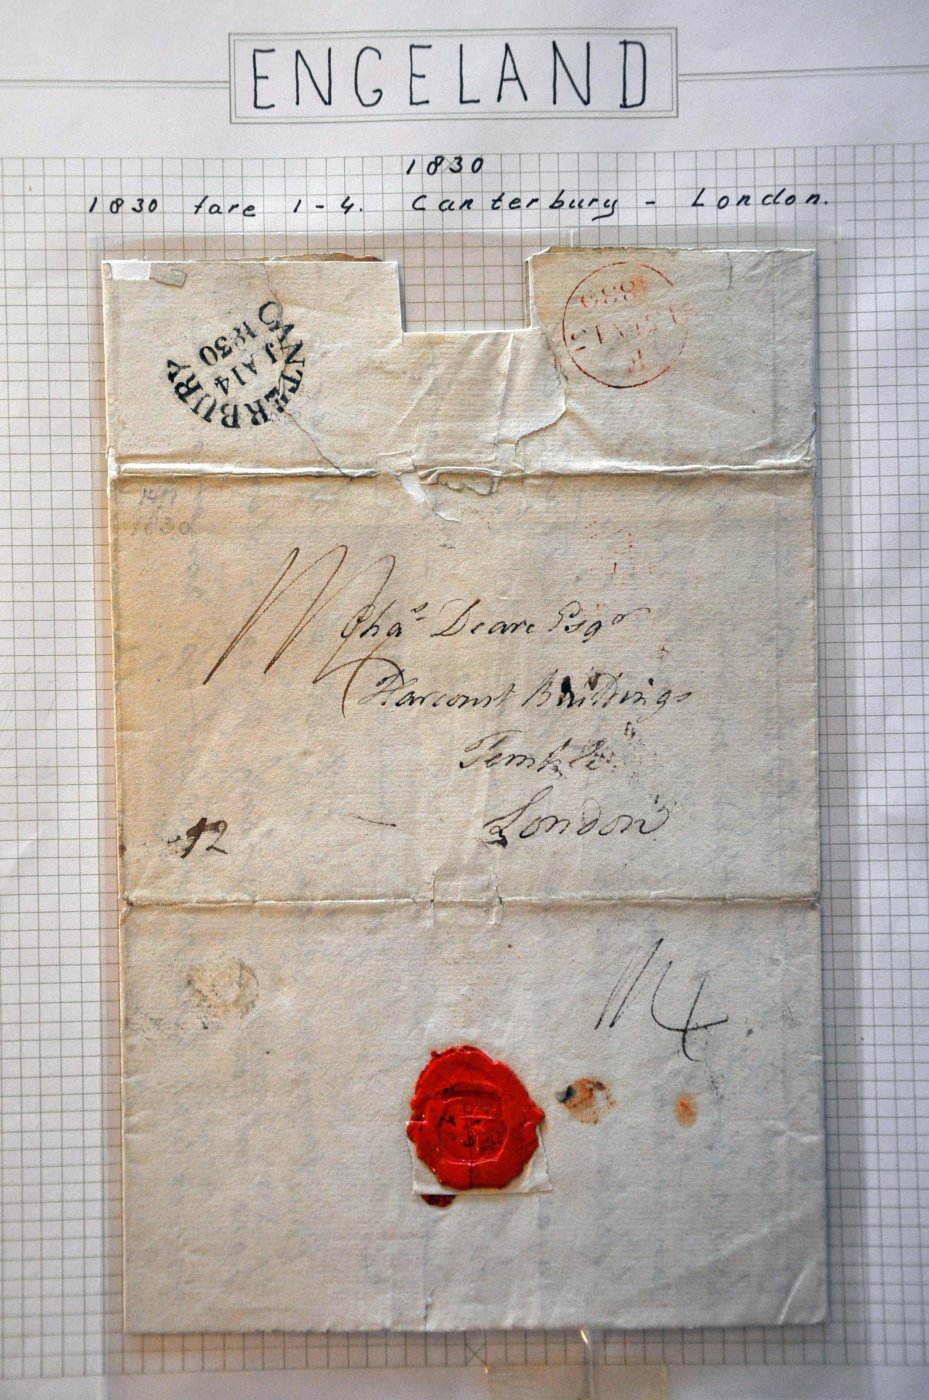 ENGELAND
1830
1830 tare 1-4. Canterbury - London.
CANTERBURY
JA 14
1830
1830
Chas Deare Esqr
Harcourt Buildings
Temple
London
12